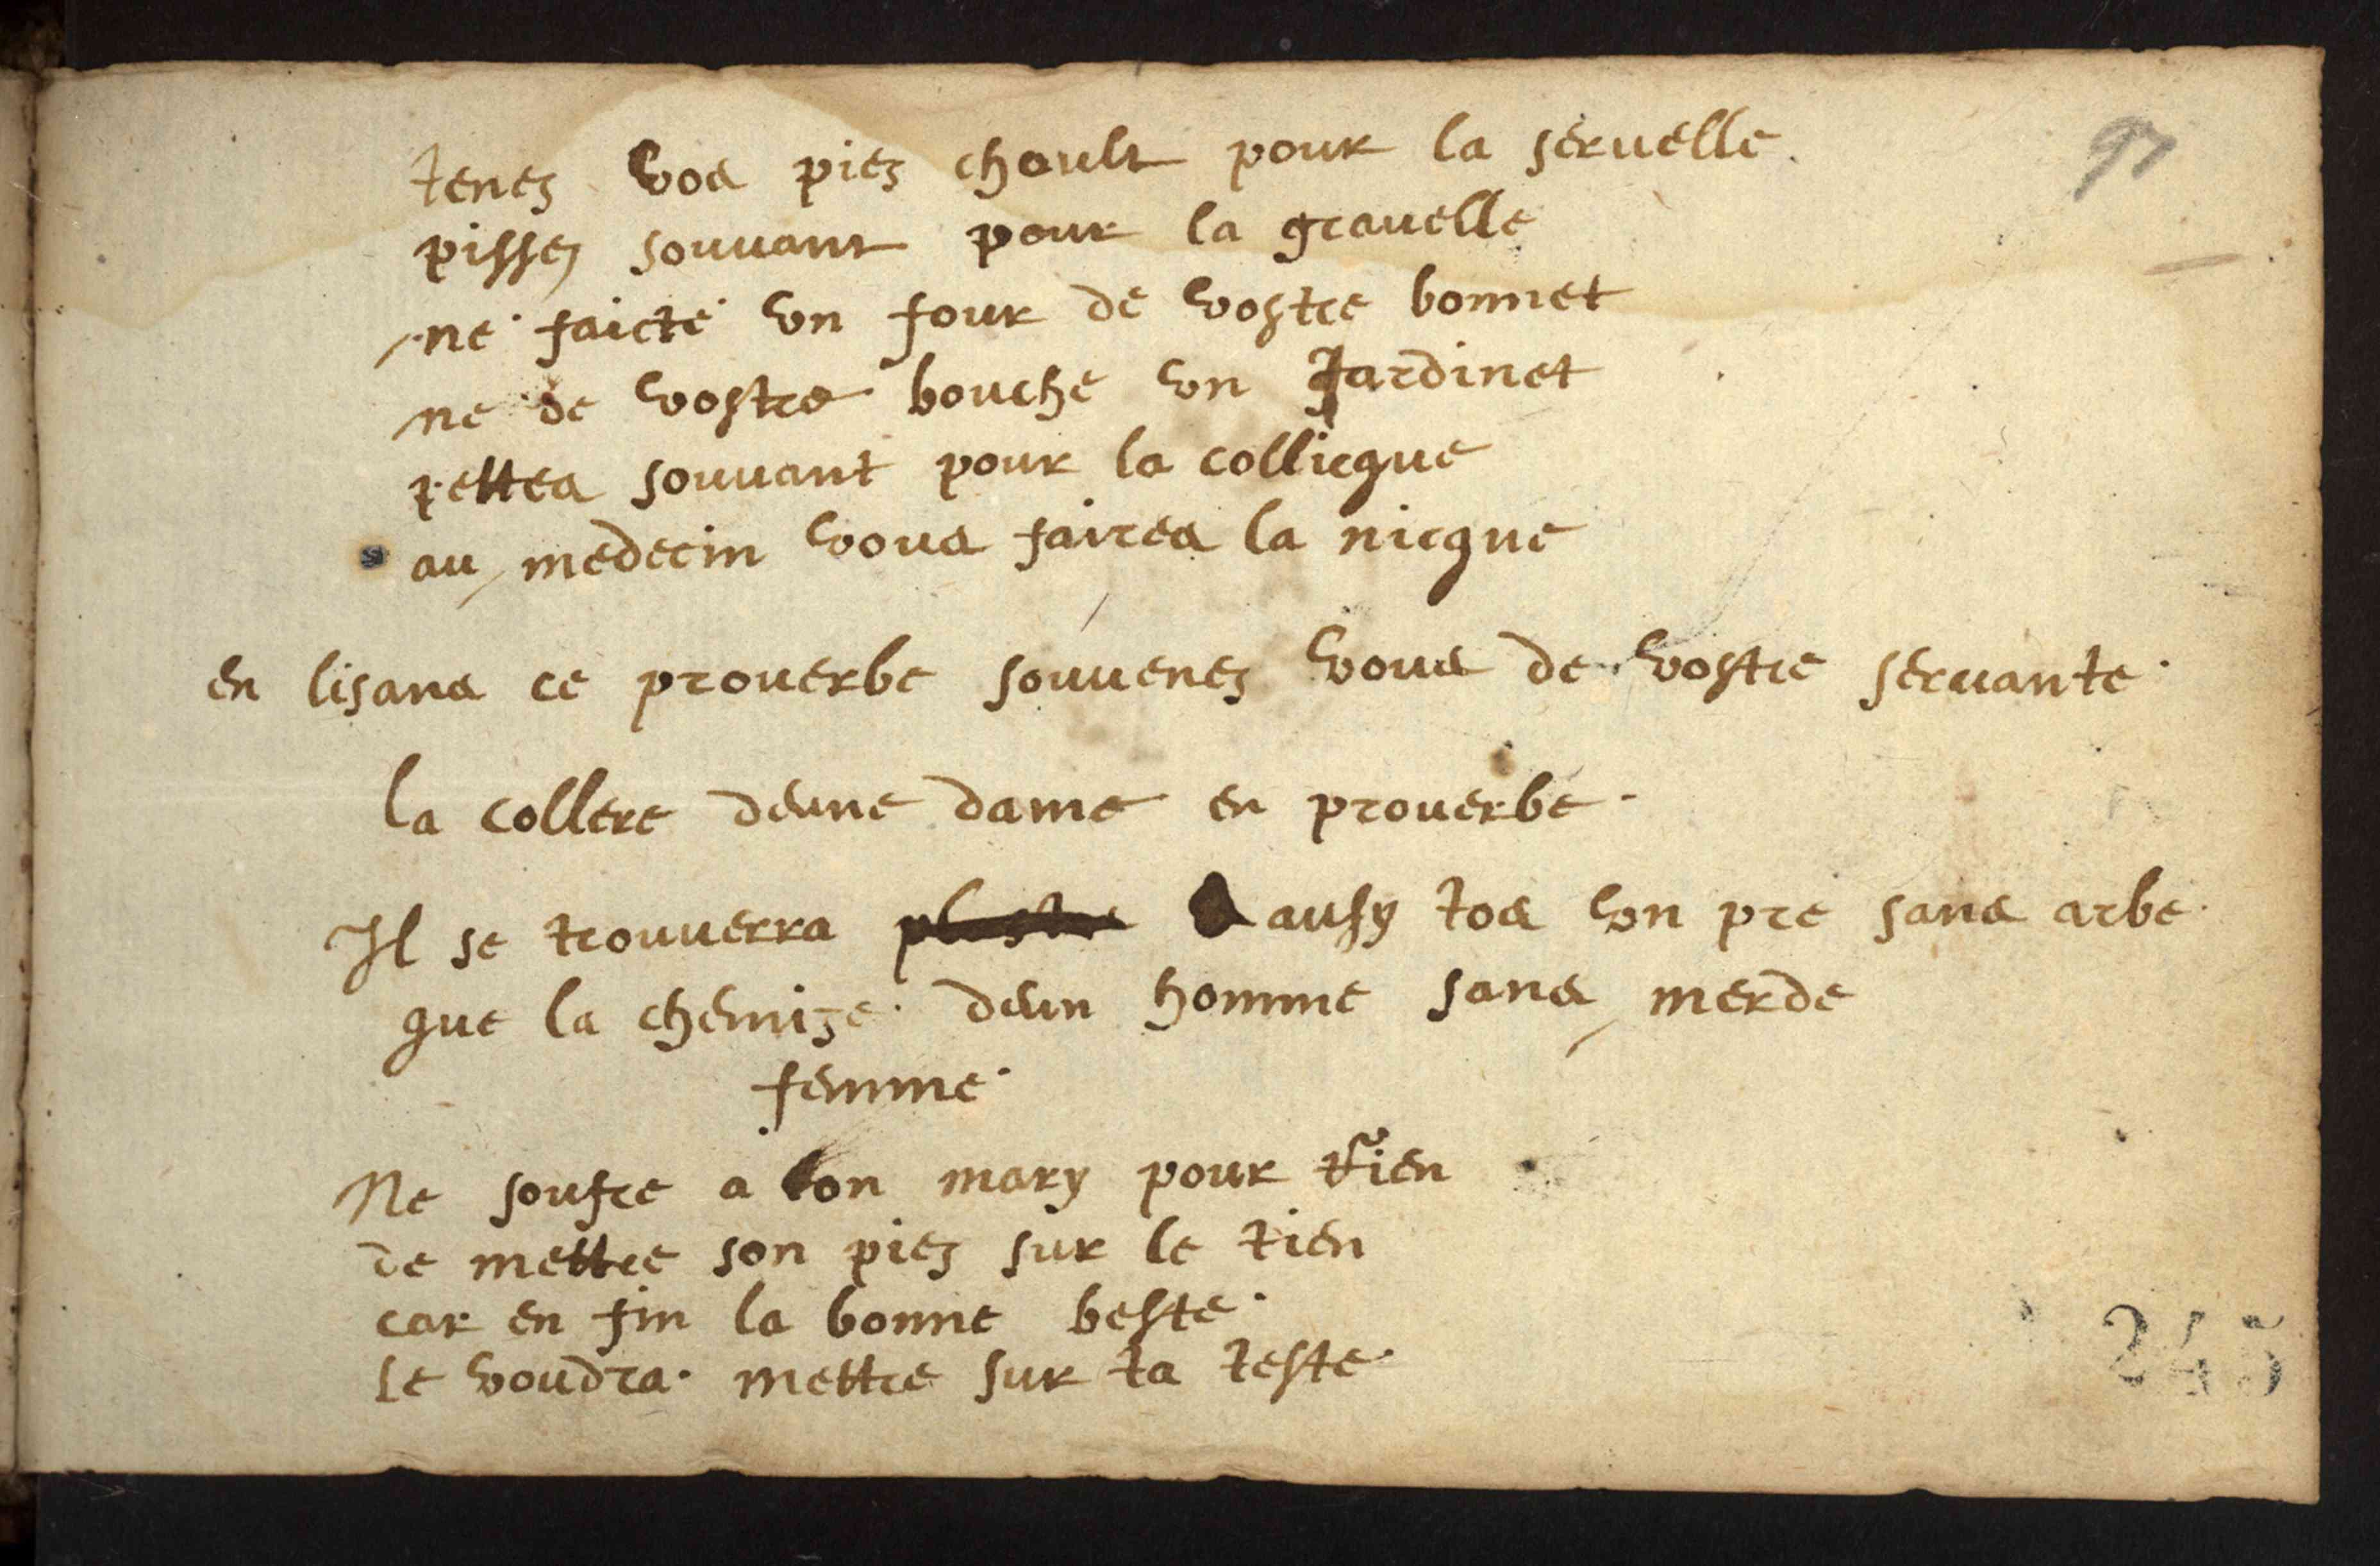 tenez vos piez chault pour la servelle.
97
pissez souvant pour la gravelle
ne faicte un four de vostre bonnet
ne de vostre bouche un Jardinet
pettes souvant pour la collicque
au medecin vous faires la nicque
en lisans ce proverbe souvenez vous de vostre servante.
la collere deune dame en proverbe.
Il se trouverra ausy tos un pre sans arbe.
que la chemize deun homme sans merde
femme.
Ne soufre a ton mary pour rien
de mettre son piez sur le tien
car en fin la bonne beste.
le voudra mettre sur ta teste
245